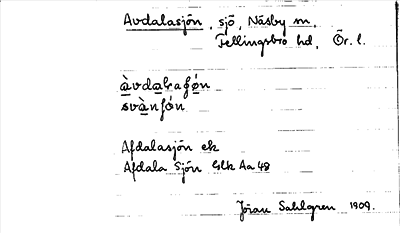 Avdalasjön, sjö, Näsby sn,
Fellingsbro hd, Ör. l.
Afdalasjön ek
Afdala Sjön Glk Aa 48
Jöran Sahlgren 1909.